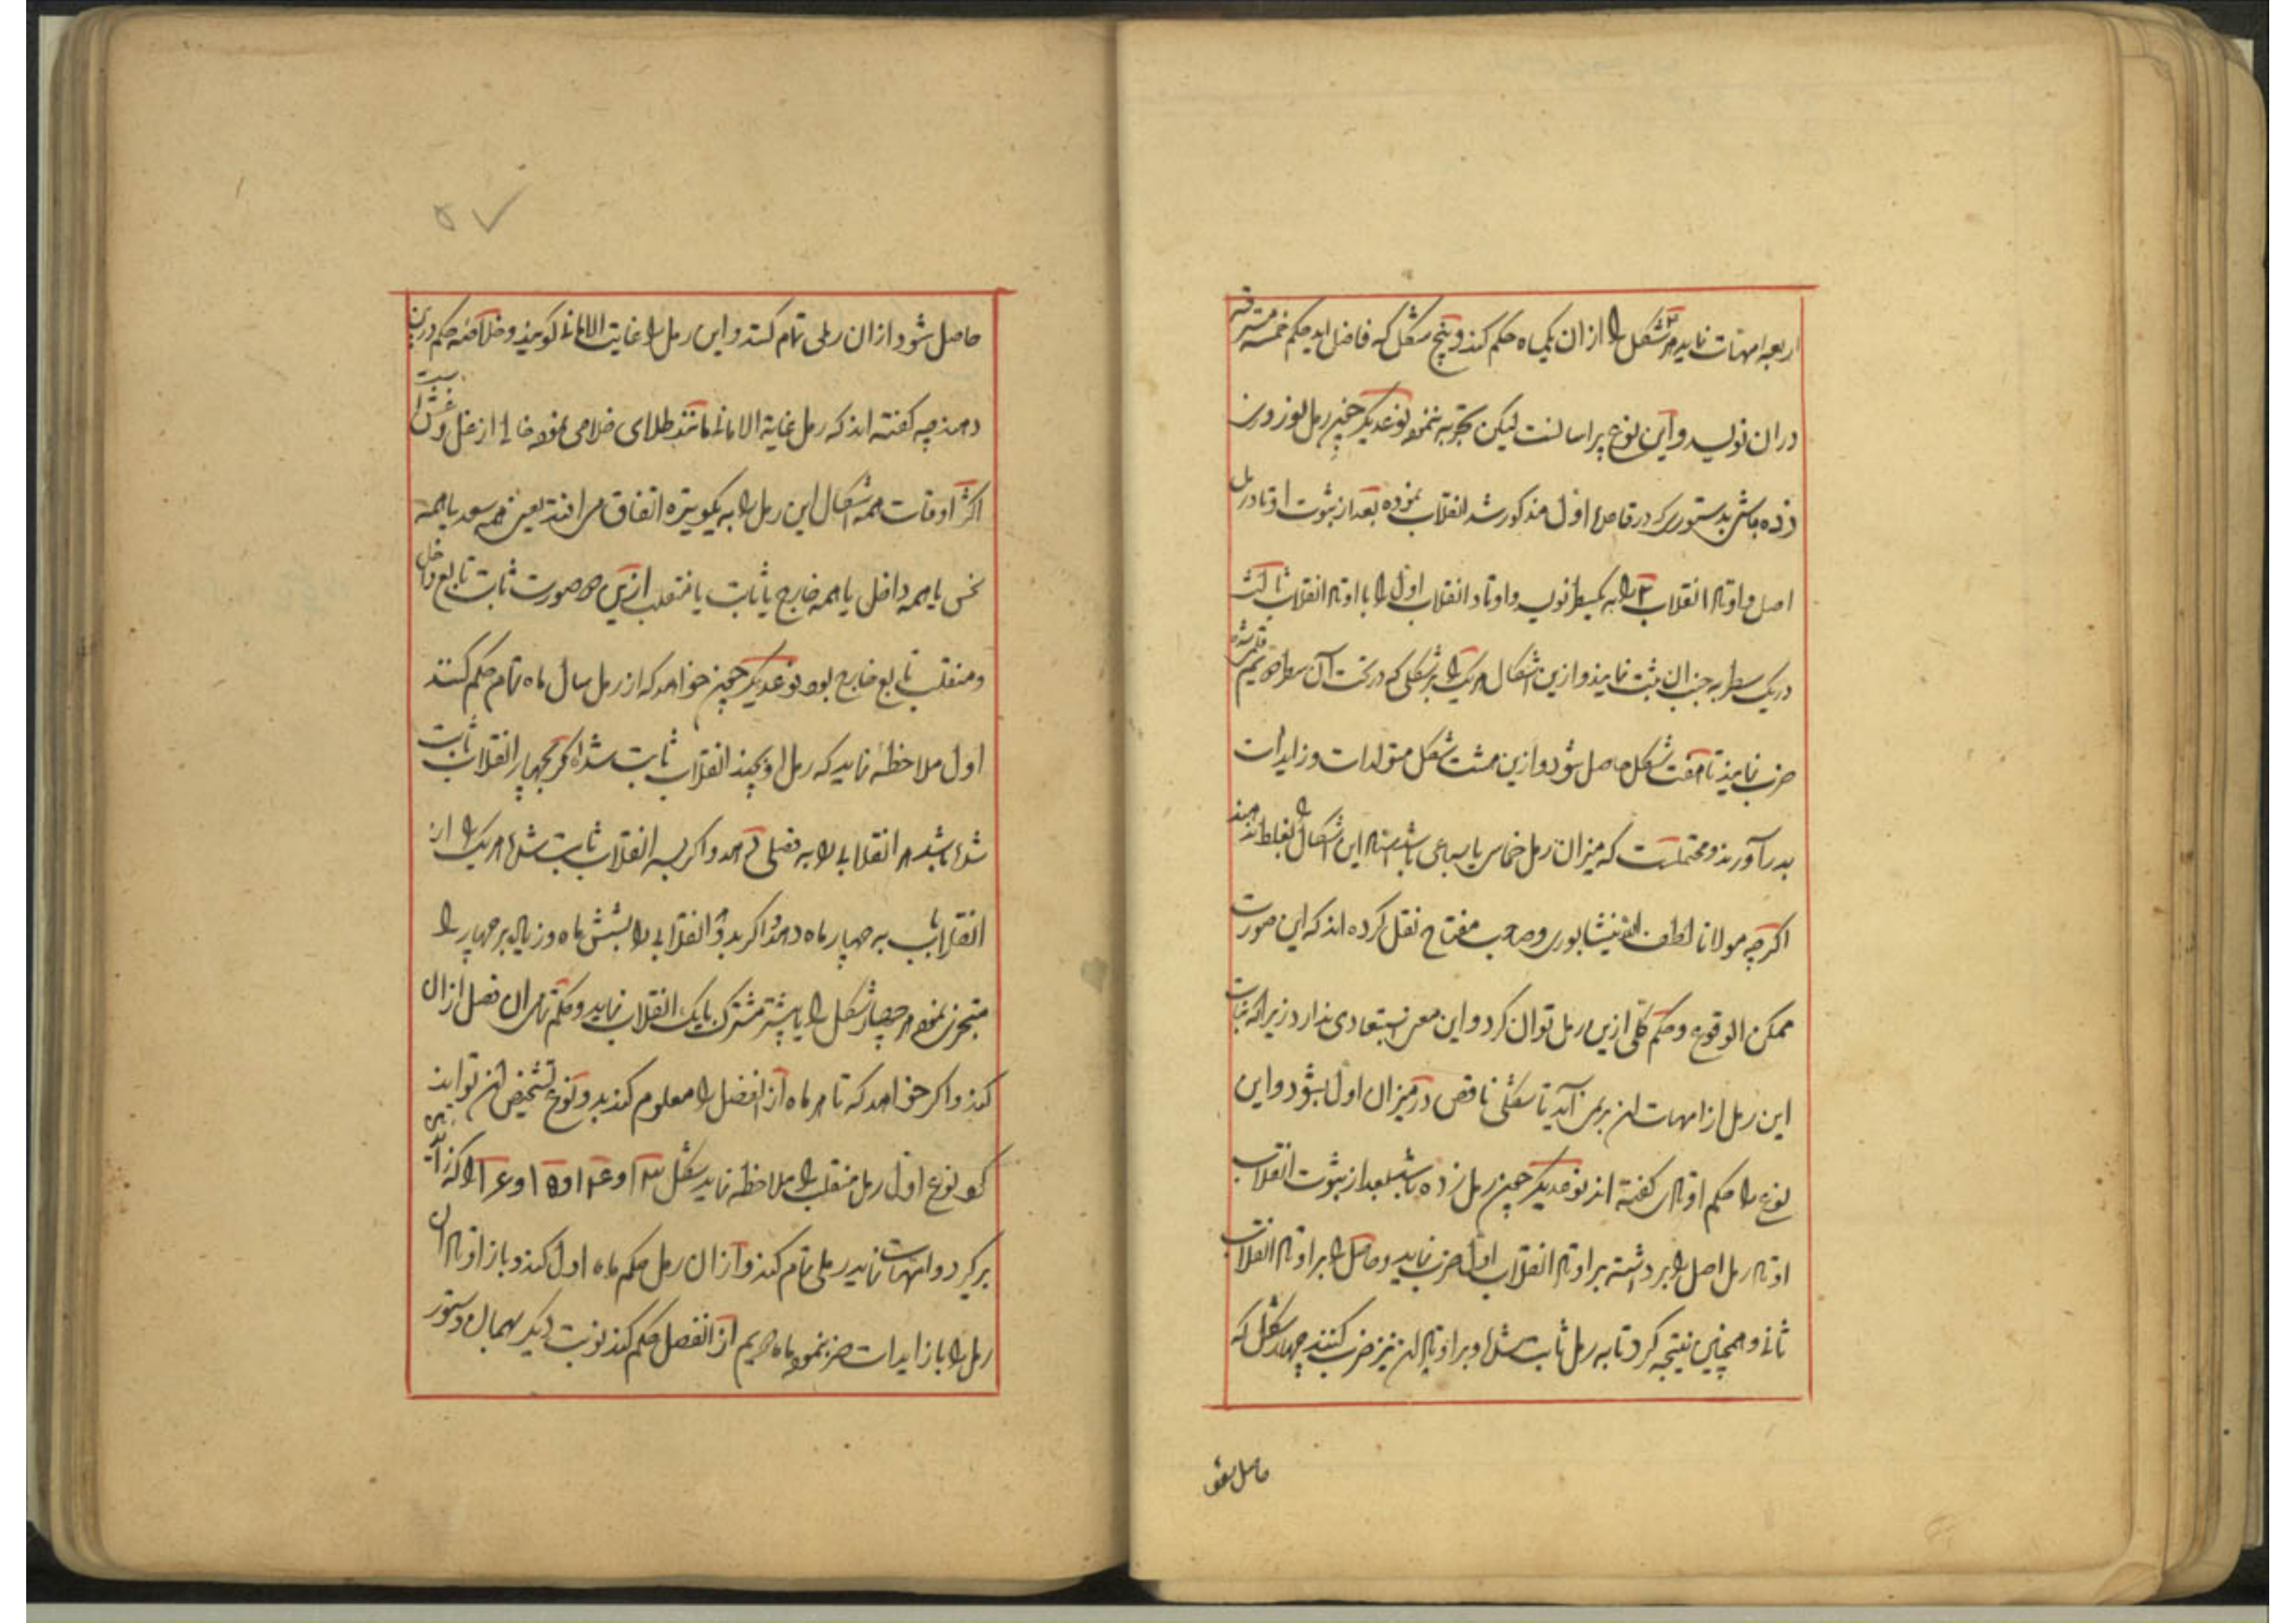 اربعه امهات نماید هر شکل را از ان یکماه حکم کند و پنج شکل که فاضل اید حکم خمسه مسترقه
دران نویسد و این نوع پر اسانست لیکن تجربه ننموده نوعدیگر چنین رمل نوروز
زده باشی بدستوری که در قاعده اول مذکور شد انقلاب نموده بعد از ثبوت اوتاد رمل
اصل و اوتاد انقلاب ۲ را به یکسطر نویسد و اوتاد انقلاب اول را با اوتاد انقلاب ثالث
دریک سطر به جنب ان ثبت نمایند و ازین اشکال هر یک را بر شکلی که در تحت آن سطر
ضرب نمایند تا هفت شکل حاصل شود و ازین هشت شکل متولدات و زایدات
بدر آورند و محتملست که میزان رمل خماسی یا سباعی باشد استاد این اشکال را بغلط
اگرچه مولانا لطف الله نیشابوری و صاحب مفتاح نقل کرده اند که این صورت
ممکن الوقوع و حکم کلی ازین رمل توان کرد و این معنی استبعادی ندارد زیرا که
این رمل از امهات ان بر می آید تا شکلی ناقص در میزان اول بشود و این
نوع را حکم اوتادی گفته اند نوعدیگر چنین رمل زده باشد بعد از ثبوت انقلاب
اوتاد رمل اصل را برداشته بر اوتاد انقلاب اول ضرب نماید و حاصل را بر اوتاد انقلاب
ثانی و همچنین نتیجه کرد تا به رمل ثابت شده و بر اوتاد ان نیز ضرب کنند چهار شکل که
حاصل شود
۵۷
حاصل شود از ان رملی تمام کنند و این رمل را غایت الامانی گویند و خلاصه حکم درین
دهند چه گفته اند که رمل غایة الامانی مانند طلای خلاصی بود خالی از غل و غش است
اکثر اوقات همه اشکال این رمل را به یکوتیره اتفاق می افتد یعنی همه سعد یا همه
نحس یا همه داخل یا همه خارج یا ثابت یا منقلب ازین صورت ثابت تابع داخل
و منقلب تابع خارج بود نوعدیگر چنین خواهد که از رمل سال ماه تمام حکم کنند
اول ملاحظه نماید که رمل او بچند انقلاب ثابت شده اگر بچهار انقلاب ثابت
شده باشد هر انقلابی را به فصلی دهد و اگر بسه انقلاب ثابت شده هر یک را از
انقلابات به چهار ماه دهد و اگر بدو انقلابی را بشش ماه و زیاده بر چهار را
متجزی نموده هر چهار شکل را یا پیشتر مشترک بایک انقلاب نماید و حکم تمامی ان فصل از ان
کند و اگر خواهد که تا هر ماه از انفصل را معلوم کند بدو نوع تشخیص ان تواند
کرد نوع اول رمل منقلب را ملاحظه نماید شکل ۱۳ و ۱۴ و ۱۵ و ۱۶ را که زایدات
برگیرد و امهات نماید رملی تمام کند و از ان رمل حکم ماه اول کند و باز اوتاد ان
رمل را با زایدات ضرب نموده ماه دویم از انفصل حکم کند نوبت دیگر بهمان دستور